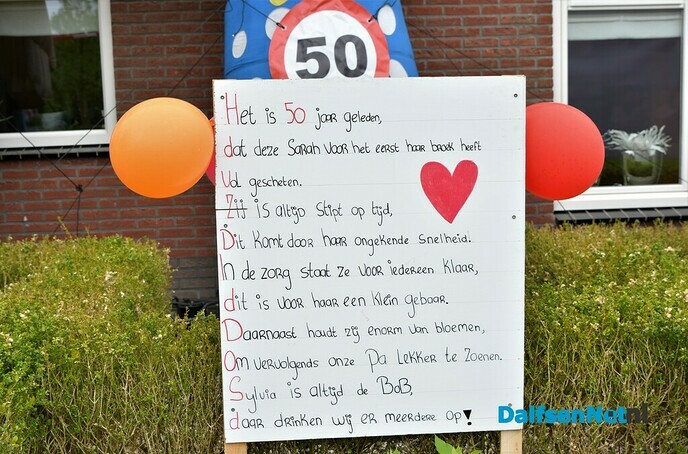 50
Het is 50 jaar geleden,
dat deze Sarah voor het eerst haar broek heeft
vol gescheten.
Zij is altijd stipt op tijd,
Dit komt door haar ongekende snelheid.
In de zorg staat ze voor iedereen klaar,
dit is voor haar een klein gebaar.
Daarnaast houdt zij enorm van bloemen,
Om vervolgens onze Pa lekker te zoenen.
Sylvia is altijd de BoB,
daar drinken wij er meerdere op!
DalfsenNet.nl